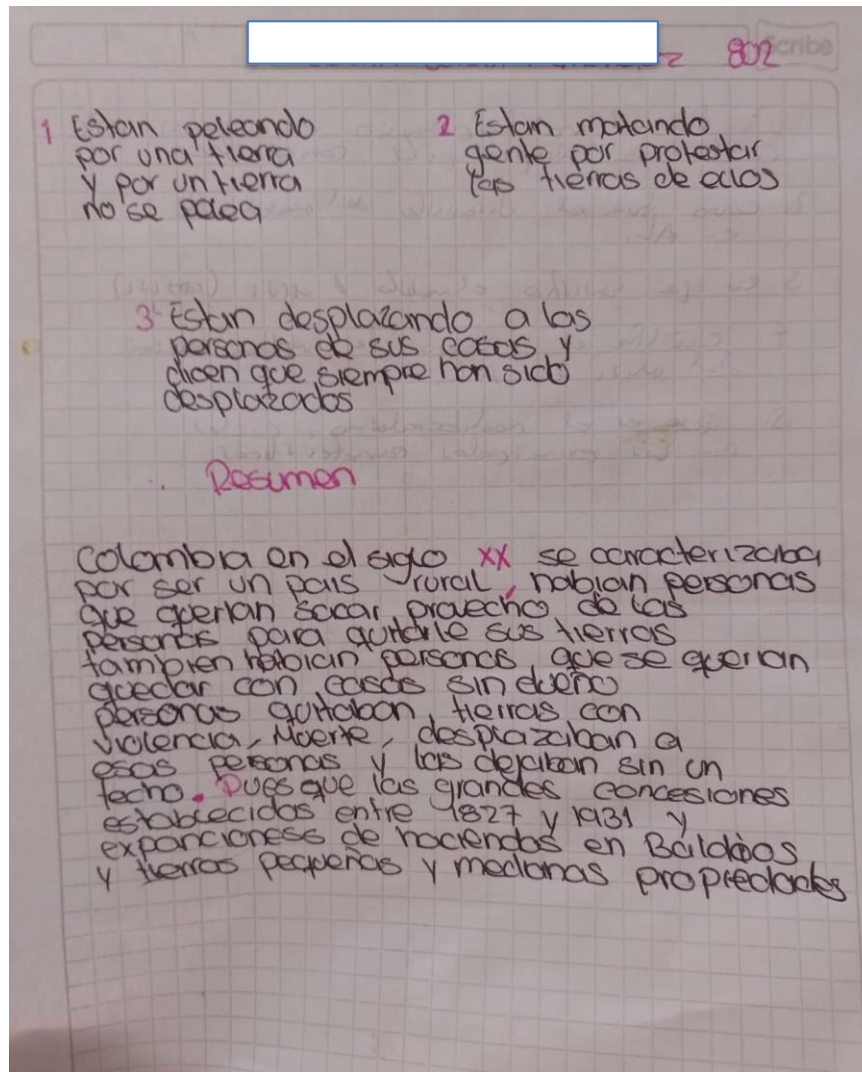 802
Scribe
1 Estan peleando
por una tierra
y por un tierra
no se pelea
2 Estan matando
gente por protestar
las tierras de ellos
3 Estan desplazando a las
personas de sus casas y
dicen que siempre han sido
desplazados
Resumen
Colombia en el siglo XX se caracterizaba
por ser un pais rural, habian personas
que querian sacar provecho de las
personas para quitarle sus tierras
tambien habian personas que se querian
quedar con casas sin dueño
personas quitaban tierras con
violencia, Muerte, desplazaban a
esas personas y las dejaban sin un
techo. Pues que las grandes concesiones
establecidas entre 1827 y 1931 y
expancioness de haciendas en Baldios
y tierras pequeñas y medianas propiedades